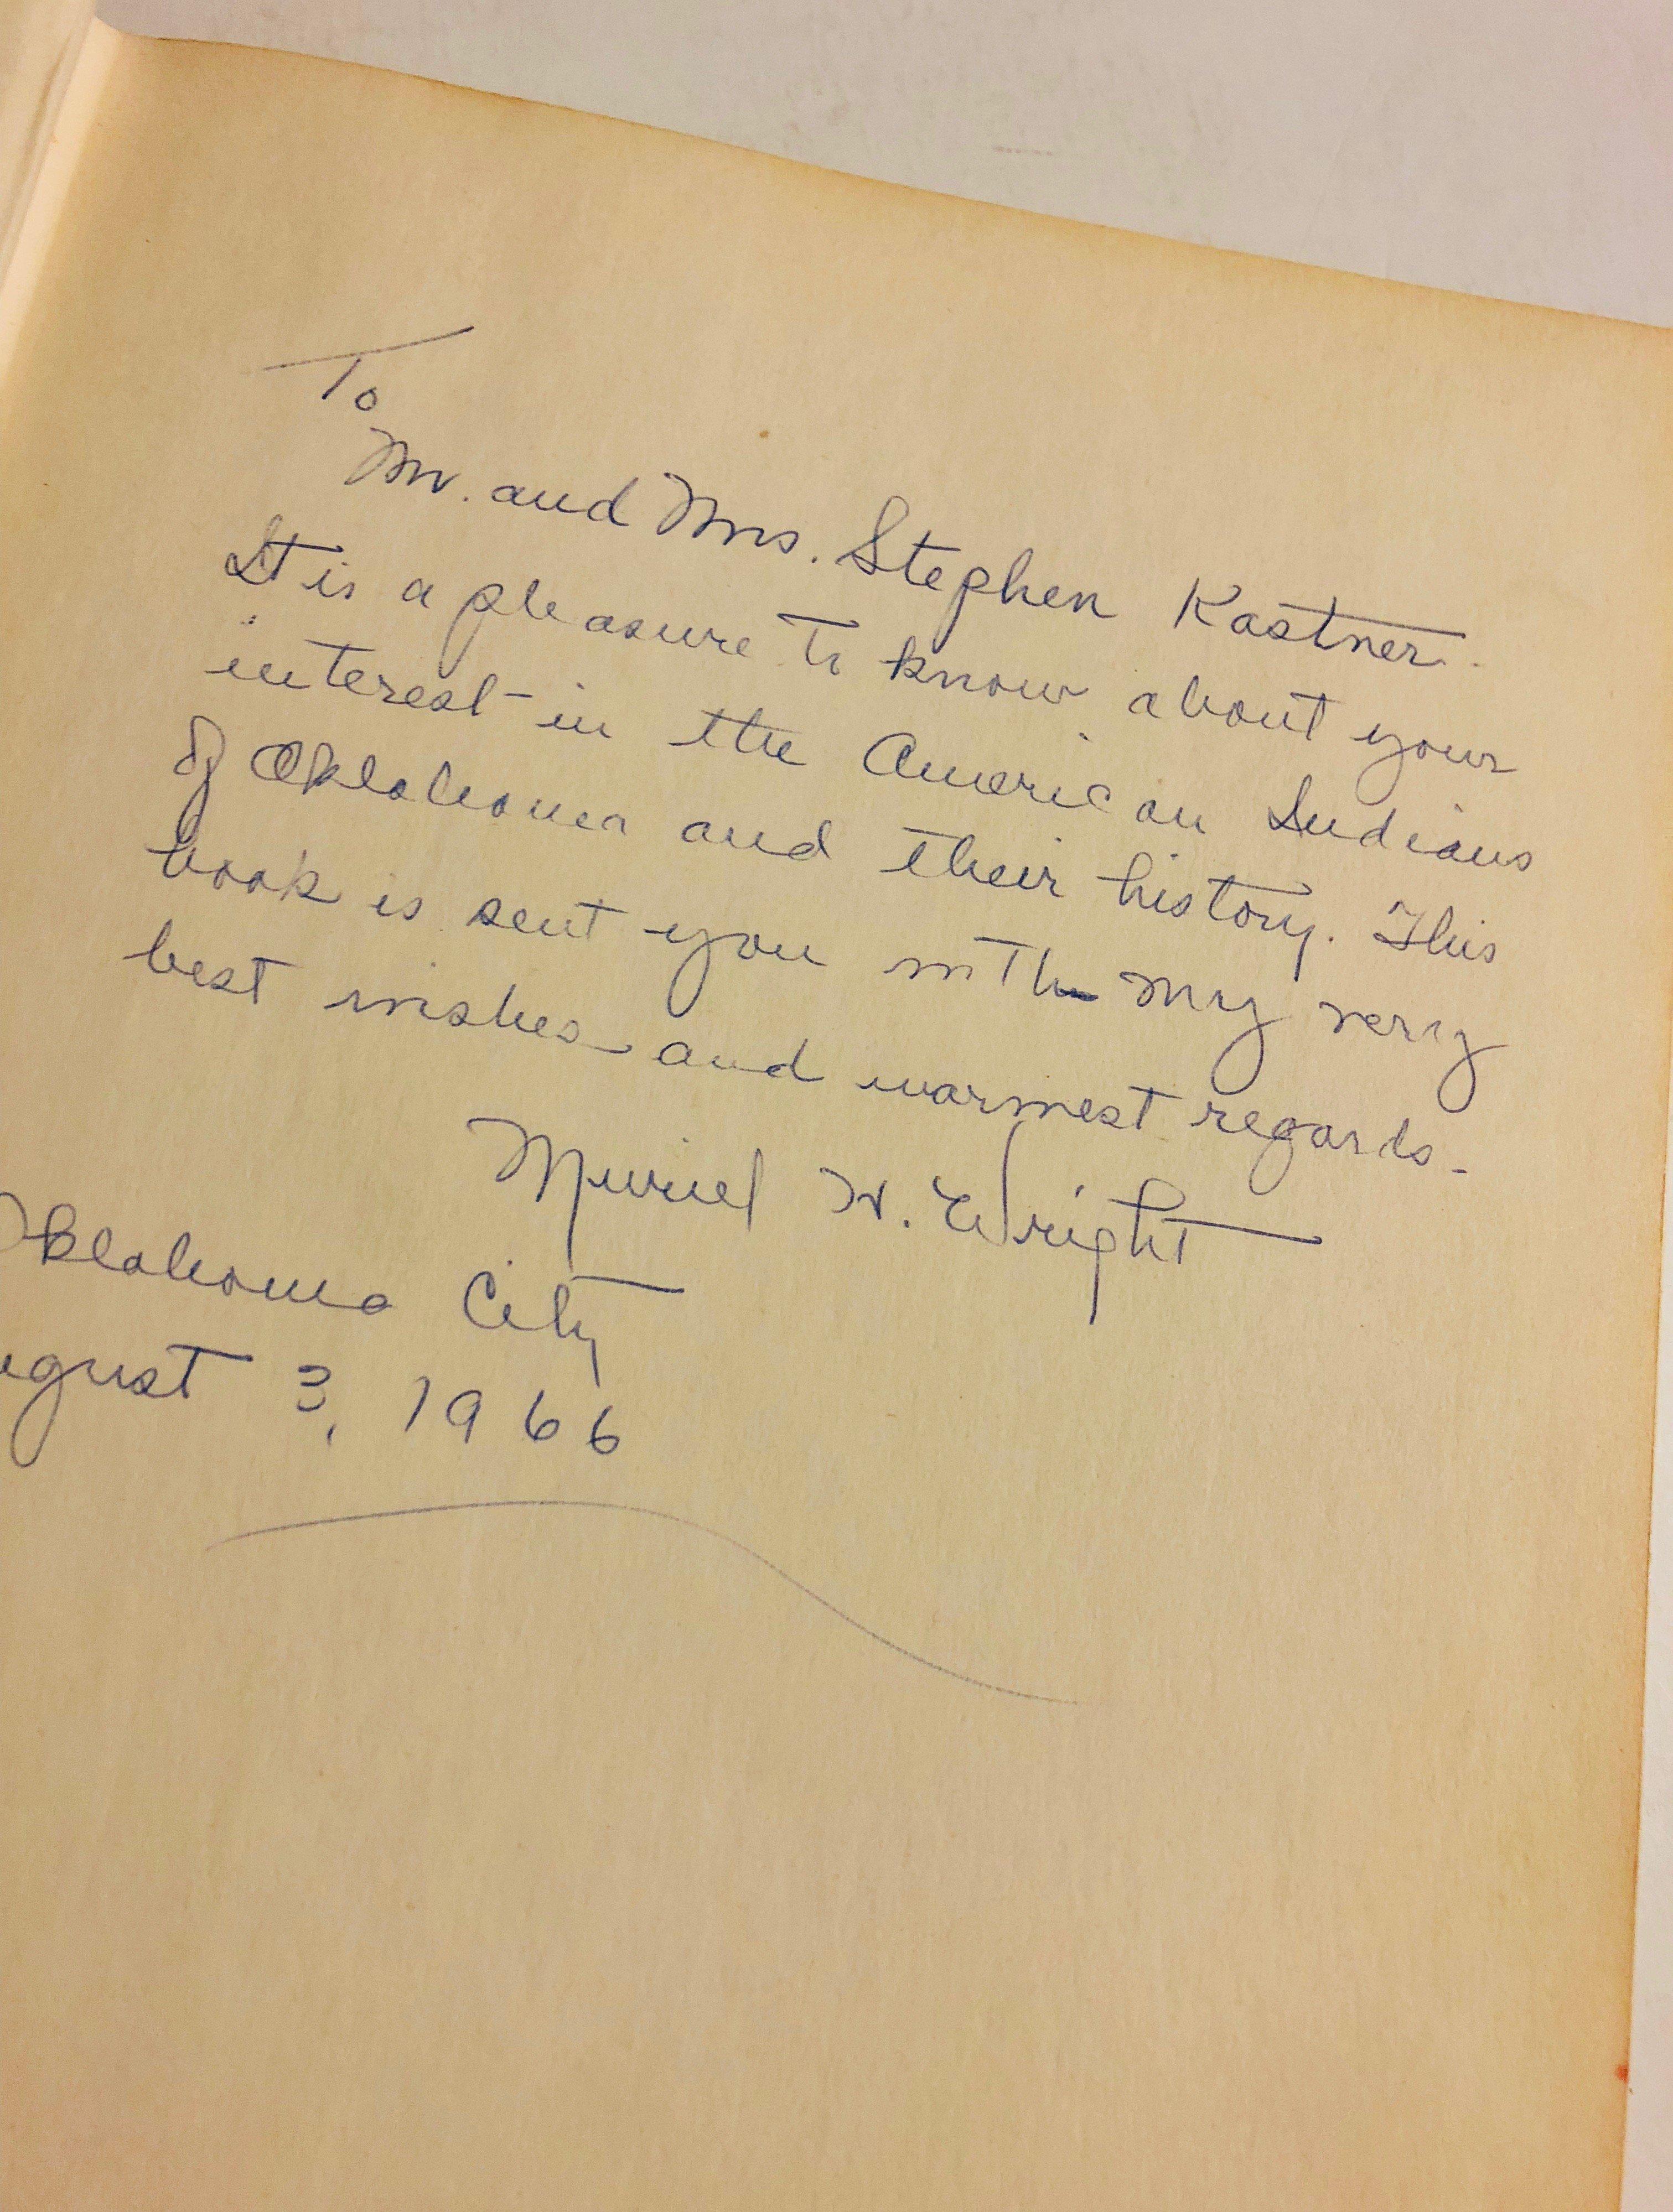 To
Mr. and Mrs. Stephen Kastner.
It is a pleasure to know about your
interest in the American Indians
of Oklahoma and their history. This
book is sent you with my very
best wishes and warmest regards.
Muriel H. Wright
Oklahoma City
ugust 3, 1966